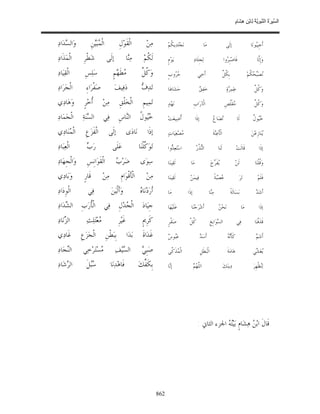 السّيرَة النّبويّة لابْن هِشام
أَجِيبُونَا إِلَى مَا نَجْتَدِيكُمْ مِنْ الْقَوْلِ الْمُبَيَّنِ وَالسَّدَادِ
وَإِنَّا فَاصْبِرُوا لِجِلَادِ يَوْمٍ لَكُمْ مِنَّا إِلَى شَطْرِ الْمَذَادِ
نُصَبِّحُكُمْ بِكُلِّ أَخِي حُرُوبٍ وَكُلِّ مُطَهَّمٍ سَلِسِ الْقِيَادِ
وَكُلِّ طِمِرَّةٍ خَفِقٌ حَشَاهَا تَدِفُّ دَفِيفَ صَفْرَاءِ الْجَرَادِ
وَكُلِّ مُقَلَّصِ الْآرَابِ نَهْدٍ تَمِيمِ الْخَلْقِ مِنْ أُخْرٍ وَهَادِي
خُيُولٌ لَا تُضَاعُ إِذَا أُضِيعَتْ خُيُولُ النَّاسِ فِي السَّنَةِ الْجَمَادِ
يُنَازِعْنَ الْأَعِنَّةَ مُصْغِيَاتٍ إِذَا نَادَى إِلَى الْفَزَعِ الْمُنَادِي
إِذَا قَالَتْ لَنَا النُّذُرُ اسْتَعِدُّوا تَوَكَّلْنَا عَلَى رَبِّ الْعِبَادِ
وَقُلْنَا لَنْ يُفَرِّجَ مَا لَقِينَا سِوَى ضَرْبُ الْقَوَانِسِ وَالْجِهَادِ
فَلَمْ تَرَ عُصْبَةً فِيمَنْ لَقِينَا مِنْ الْأَقْوَامِ مِنْ قَارٍ وَبَادِي
أَشَدَّ بَسَالَةً مِنَّا إِذَا مَا أَرَدْنَاهُ وَأَلْيَنَ فِي الْوِدَادِ
إِذَا مَا نَحْنُ أَشْرَجْنَا عَلَيْهَا جِيَادَ الْجُدْلِ فِي الْأُرَبِ الشِّدَادِ
قَذَفْنَا فِي السَّوَابِغِ كُلَّ صَقْرٍ كَرِيمٍ غَيْرِ مُعْتَلِثِ الزِّنَادِ
أَشَمَّ كَأَنَّهُ أَسَدٌ عَبُوسٌ غَدَاةَ بَدَا بِبَطْنِ الْجَزْعِ غَادِي
يُغَشِّي هَامَةَ الْبَطَلِ الْمُذَكَّى صَبِيَّ السَّيْفِ مُسْتَرْخِي النِّجَادِ
لِنُظْهِرَ دِينَكَ اللَّهُمَّ إِنَّا بِكَفِّكَ فَاهْدِنَا سُبُلَ الرَّشَادِ
قَالَ ابْنُ هِشَامٍ بَيْتُهُ الجزء الثاني
862